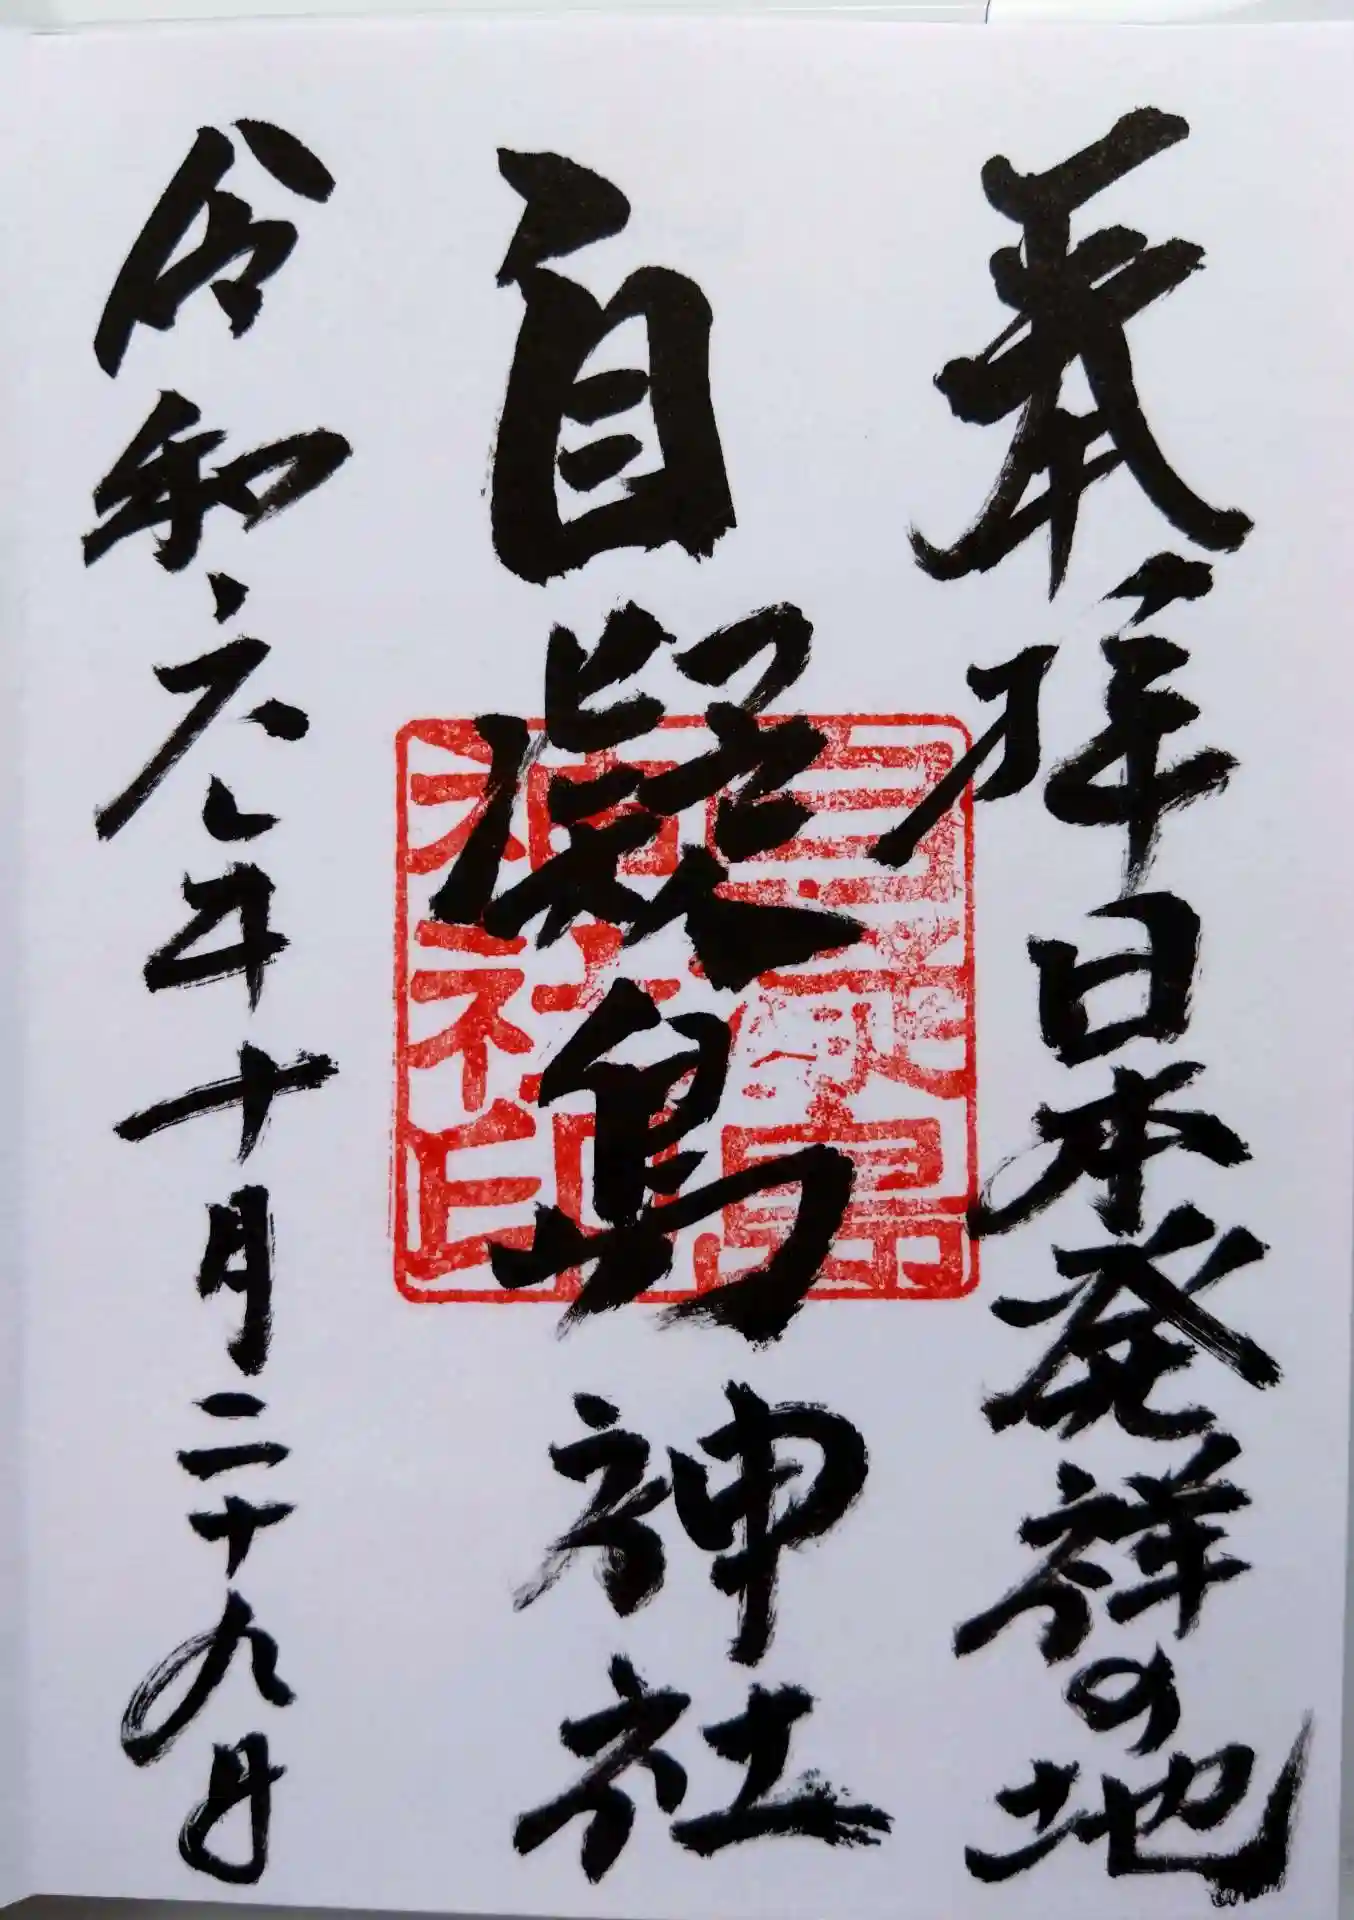 奉拝 日本発祥の地
自凝島神社
令和六年十月二十九日
自凝島
神社印